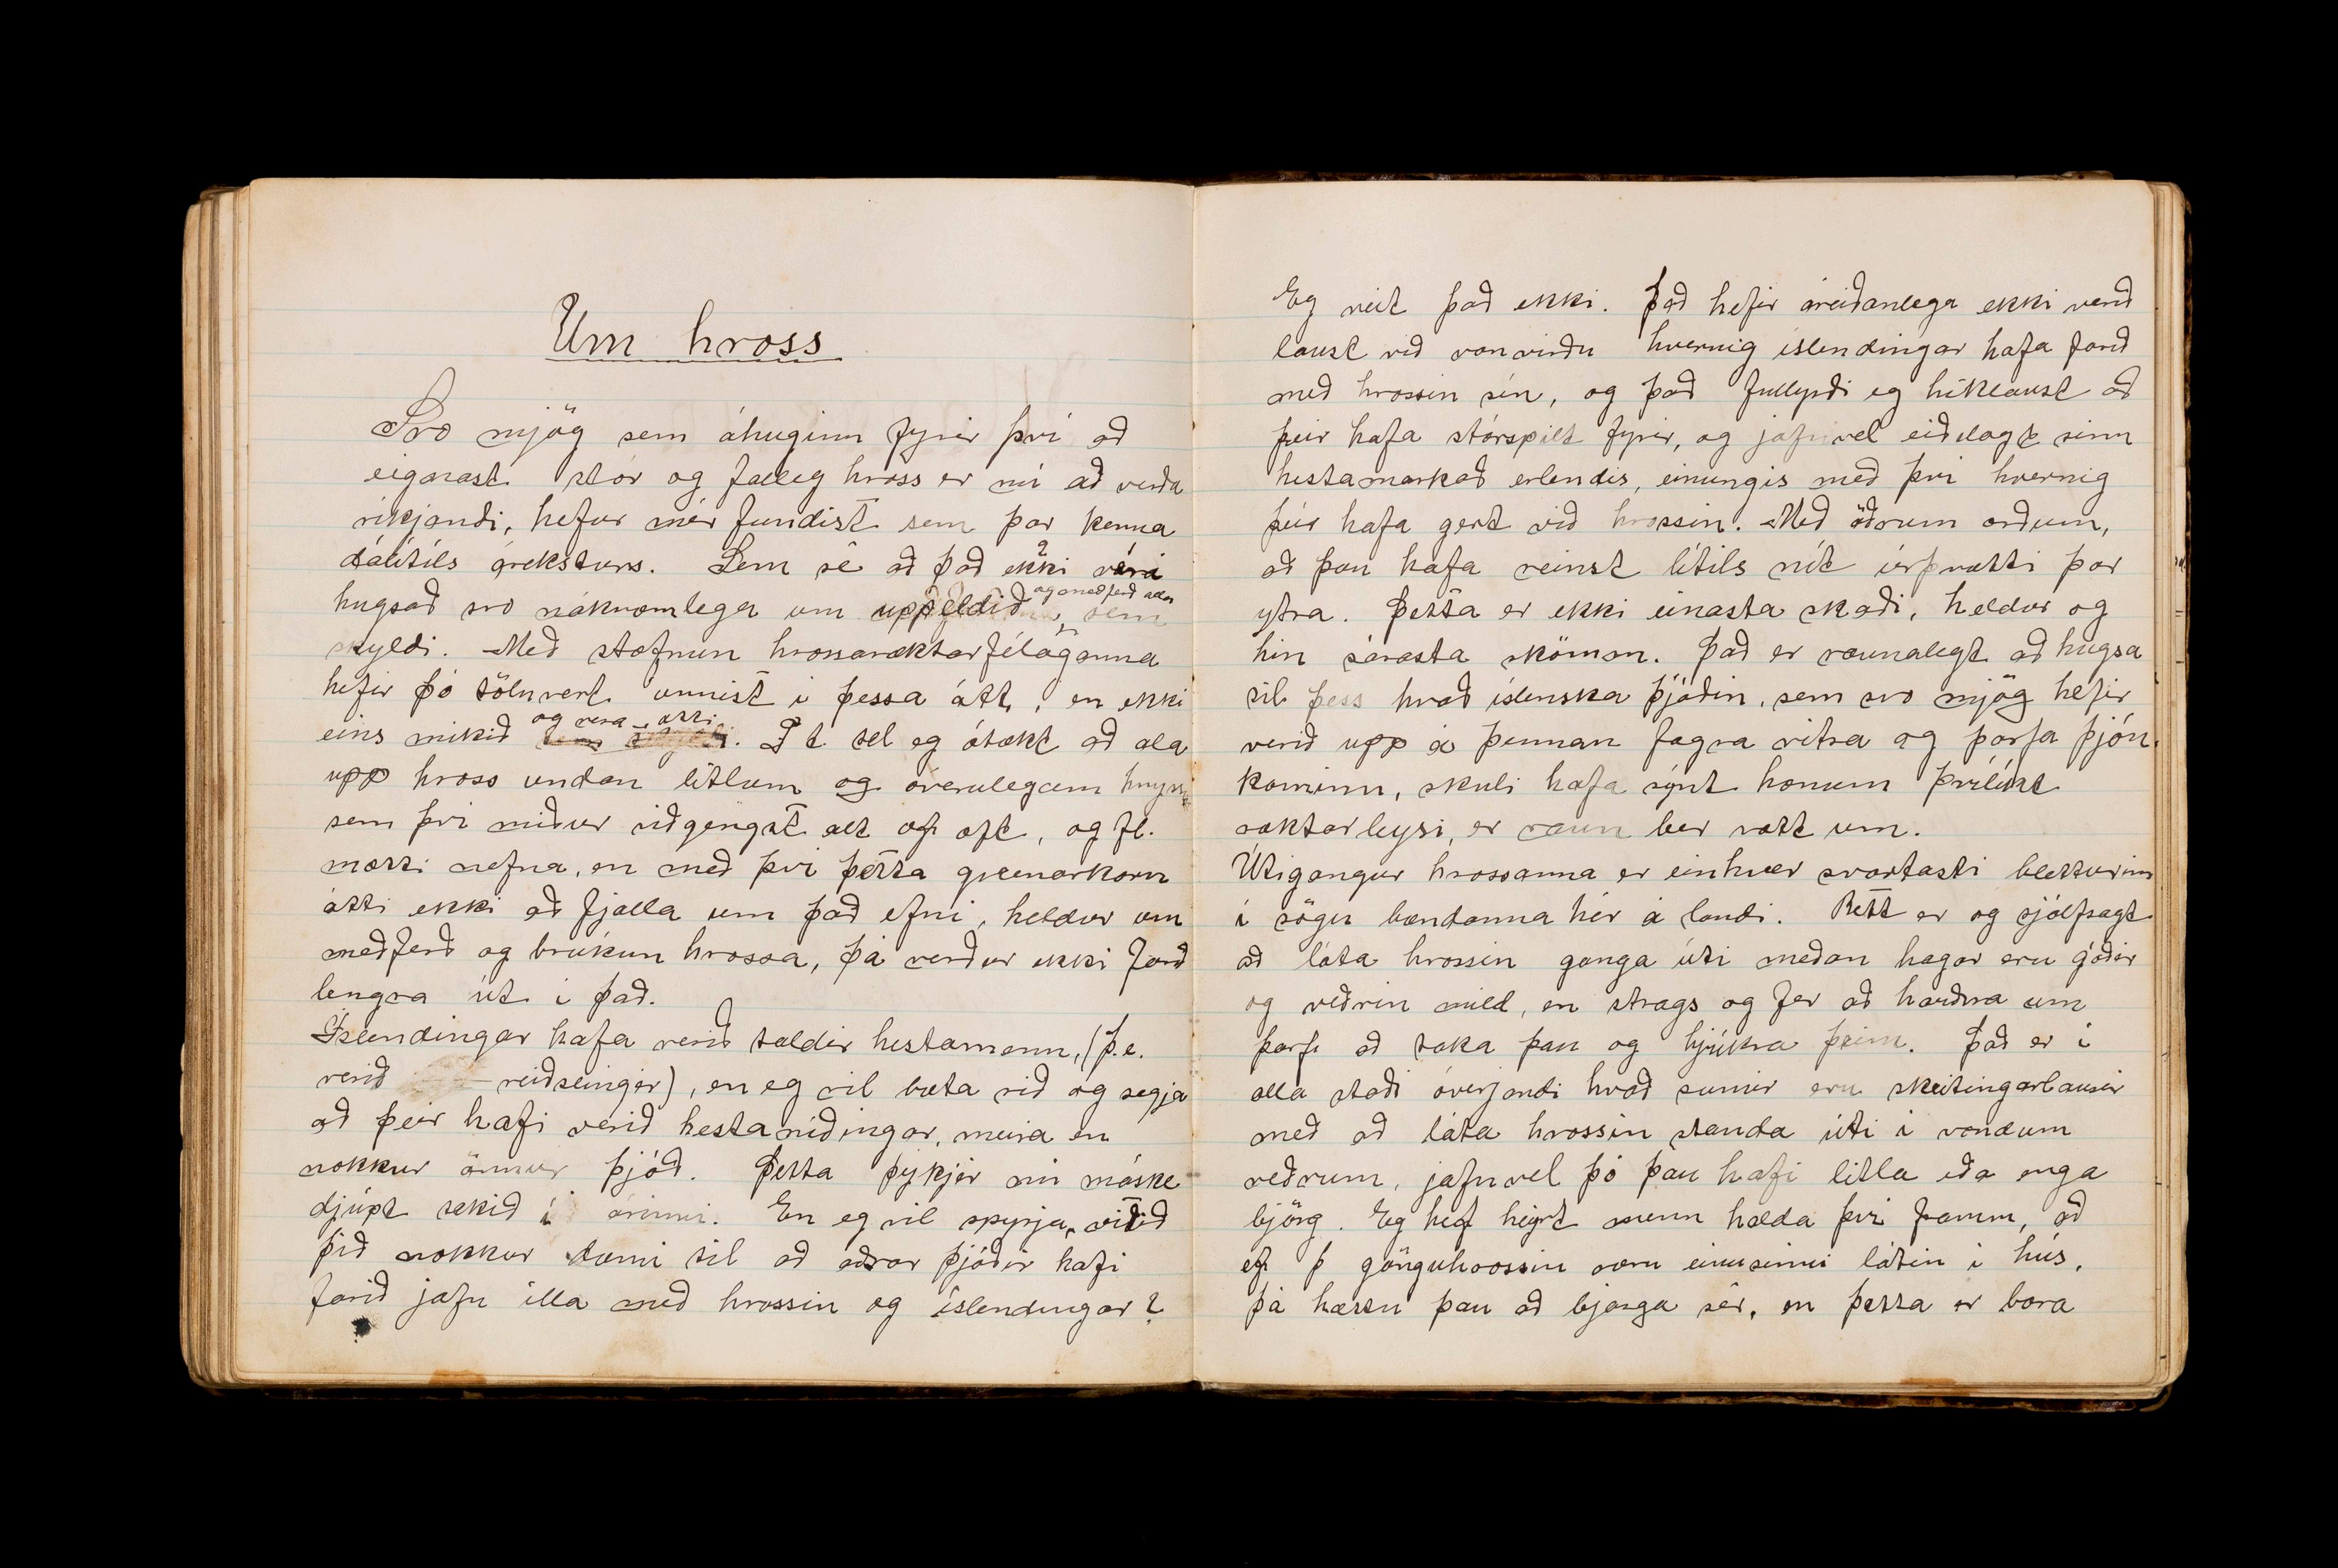 Um hross
Svo mjög sem áhuginn fyrir því að
eignast stór og falleg hross er nú að verða
ríkjandi, hefur mér fundist sem þar kenna
dálítils áreksturs. Sem sé að það ekki væri
hugsað svo nákvæmlega um uppeldið og meðferð alla, sem
skyldi. Með stofnun hrossaræktarfélaganna
hefir þó töluvert unnist í þessa átt, en ekki
eins mikið og vera ætti. T t. tel eg ótækt að ala
upp hross undan litlum og óverulegum hryss
sem því miður viðgengst alt of oft, og fl.
mætti nefna, en með því þetta greinarkorn
átti ekki að fjalla um það efni, heldur um
meðferð og brúkun hrossa, þá verður ekki farið
lengra út í það.
Íslendingar hafa verið taldir hestamenn, (þ.e.
verið reiðslingir), en eg vil bæta við og segja
að þeir hafi verið hestaníðingar, meira en
nokkur önnur þjóð. Þetta þykjir nú máske
djúpt tekið í árinni. En eg vil spyrja, vitið
þið nokkur dæmi til að aðrar þjóðir hafi
farið jafn illa með hrossin og íslendingar?
Eg veit það ekki. Það hefir áreiðanlega ekki verið
laust við vanvirðu hvernig íslendingar hafa farið
með hrossin sín, og það fullyrði eg hiklaust að
þeir hafa stórspilt fyrir, og jafnvel eiðilagt sinn
hestamarkað erlendis, einungis með því hvernig
þeir hafa gert við hrossin. Með öðrum orðum,
að þau hafa reinst lítils nít úrþvætti þar
ytra. Þetta er ekki einasta skaði, heldur og
hin sárasta skömm. Það er raunalegt að hugsa
til þess hvað íslenska þjóðin, sem svo mjög hefir
verið upp á þennan fagra vitra og þarfa þjón
kominn, skuli hafa sýnt honum þvílíkt
ræktarleysi, er raun ber vott um.
Útigangur hrossanna er einhver svartasti bletturinn
í sögu bændanna hér á landi. Rétt er og sjálfsagt
að láta hrossin ganga úti meðan hagar eru góðir
og veðrin mild, en strags og fer að harðna um
þarf að taka þau og hjúkra þeim. Það er í
alla staði óverjandi hvað sumir eru skeitingarlausir
með að láta hrossin standa úti í vondum
veðrum, jafnvel þó þau hafi litla eða enga
björg. Eg hef heirt menn halda því framm, að
ef þ gönguhrossin væru einusinni látin í hús,
þá hættu þau að bjarga sér, en þetta er bara